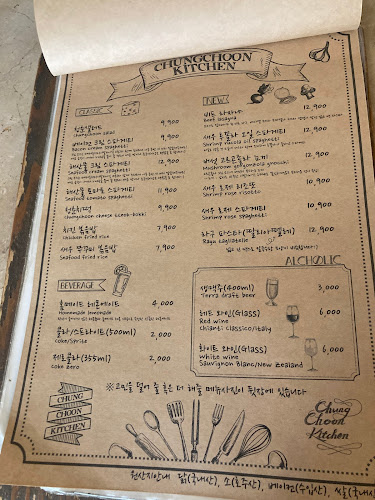 CHUNGCHOON
KITCHEN
CLASSIC
청춘샐러드 9,900
chungchoon salad
베이컨 크림 스파게티 9,900
Bacon cream spaghetti
해산물 크림 스파게티 9,900
Seafood cream spaghetti
해산물 토마토 스파게티 11,900
Seafood tomato spaghetti
청춘치떡 9,900
Chungchoon cheese tteok-bokki
치킨 볶음밥 7,900
Chicken fried rice
새우 볶음밥 7,900
Seafood fried rice
BEVERAGE
홈메이드 레몬에이드 4,000
Homemade lemonade
콜라/스프라이트(500ml) 2,000
Coke/Sprite
제로콜라(355ml) 2,000
Coke zero
NEW
비트 라자냐 12,900
Beet lasagna
새우 루꼴라 오일 스파게티 12,900
Shrimp rucola oil spaghetti
버섯 고르곤졸라 뇨끼 12,900
Mushroom gorgonzola gnocchi
새우 로제 리조또 10,900
Shrimp rose risotto
새우 로제 스파게티 10,900
Shrimp rose spaghetti
라구 파스타(딸리아텔레) 12,900
Ragu tagliatelle
ALCHOLIC
생맥주(400ml) 3,000
Terra craft beer
레드 와인(Glass) 6,000
Red wine
Chianti classico/Italy
화이트 와인(Glass) 6,000
White wine
Sauvignon Blanc/New Zealand
※고민을 덜어 줄 좀 더 해줄 메뉴사진이 뒷장에 있습니다
CHUNG
CHOON
KITCHEN
Chung
Choon
Kitchen
원산지안내 닭(국내산), 소(호주산), 베이컨(수입산), 쌀(국내산)